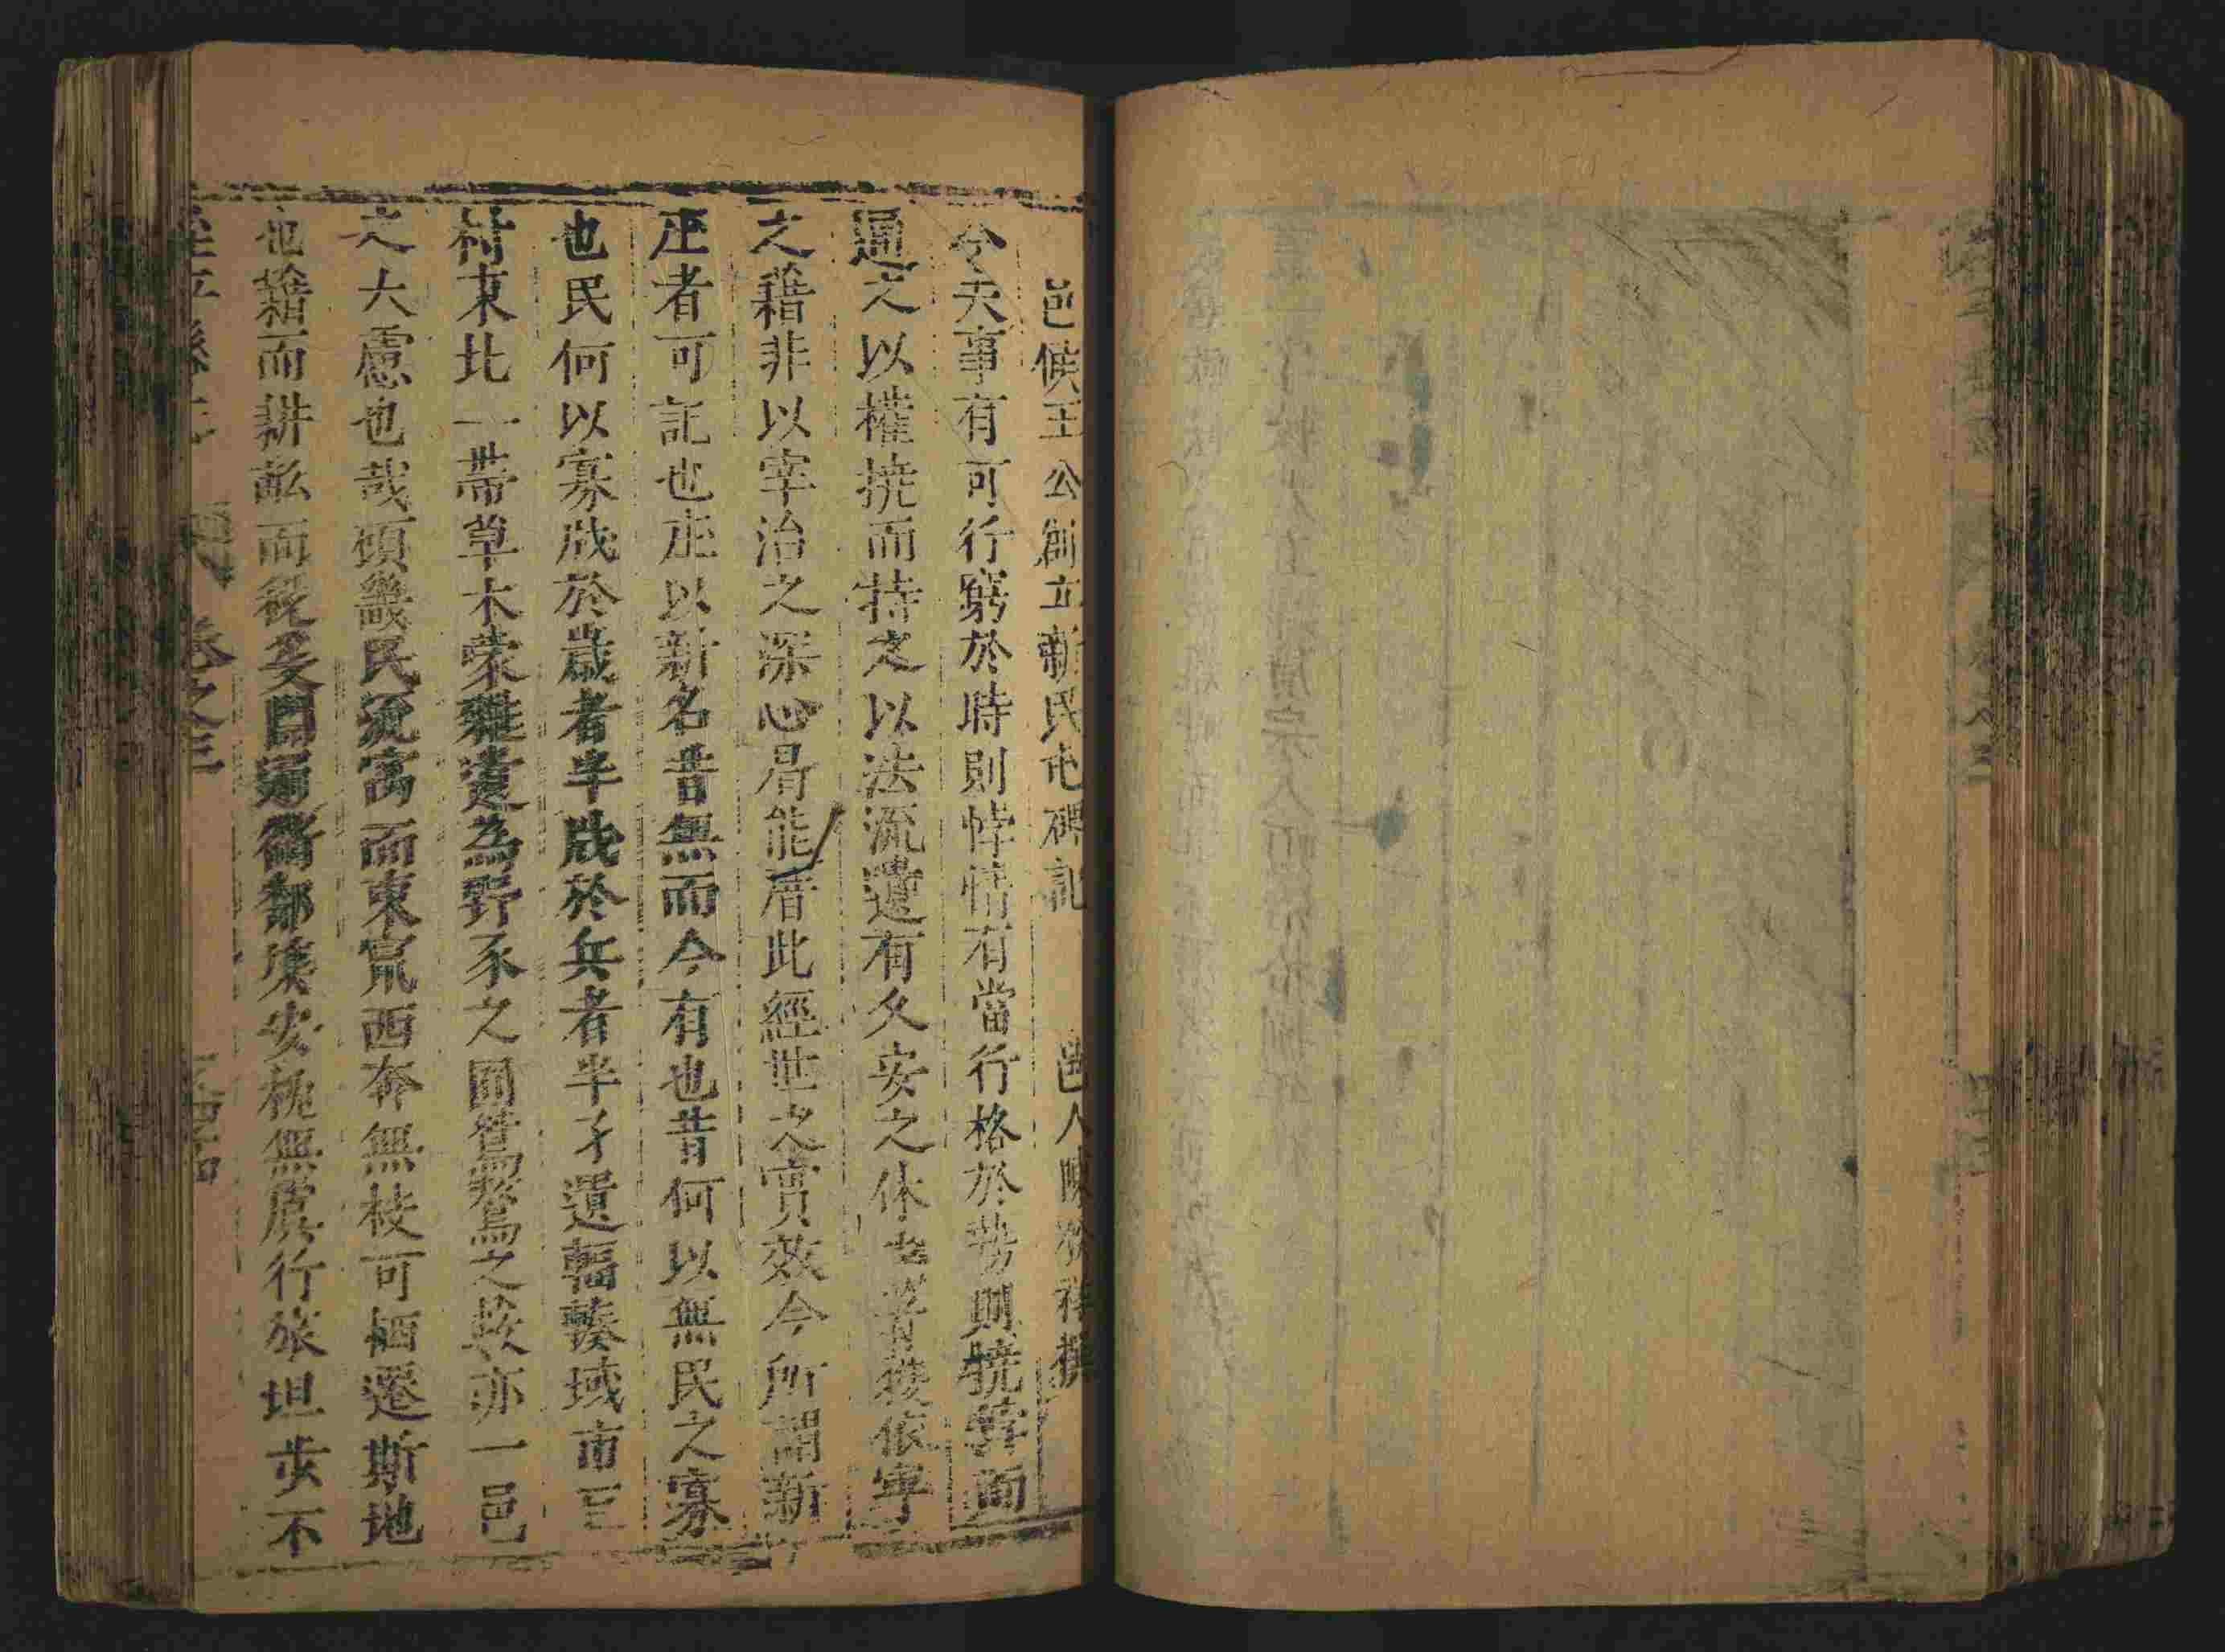 邑侯王公創立新民屯碑記 邑人陳
今夫事有可行窮於時則悖情有當行格於勢則撓悖而
通之以權撓而持之以法流遺有久安之休
之藉非以宰治之深心曷能厝此經世之實效今所謂新
屯者可記也屯以新名昔無而今有也昔何以無民之寡
也民何以寡戕於歲者半戕於兵者半孑遺輻輳域市三
村東北一帶草木蒙雜遺為野豕之圃鴛鴦之藪亦一邑
之大慮也哉頃畿民流寓而東竄西奔無枝可栖遷斯地
也藉而耕畝而 安枕無虞行旅坦步不
卷之三